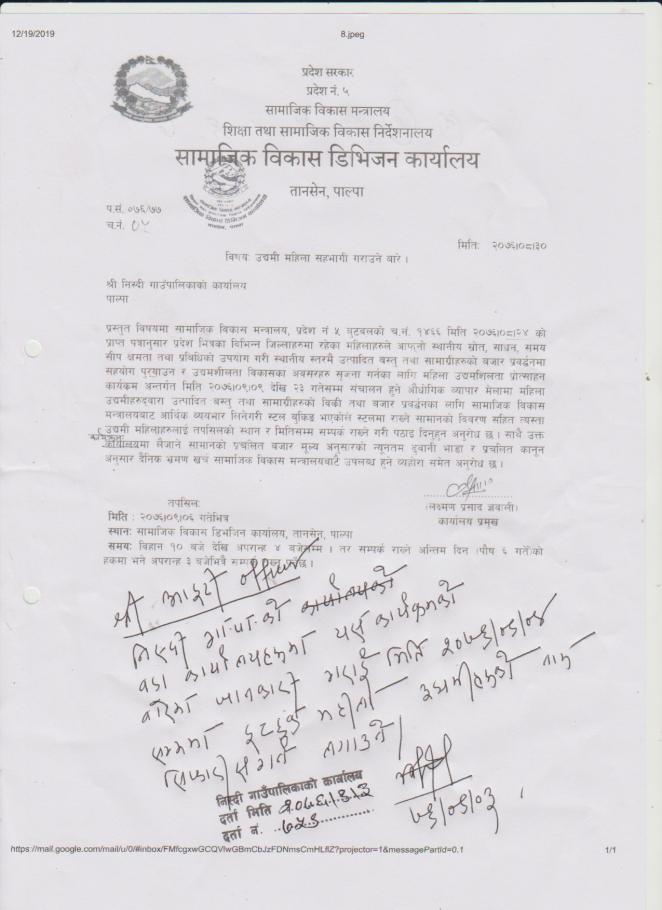 12/19/2019 8.jpeg
प्रदेश सरकार
प्रदेश नं. ५
सामाजिक विकास मन्त्रालय
शिक्षा तथा सामाजिक विकास निर्देशनालय
सामाजिक विकास डिभिजन कार्यालय
तानसेन, पाल्पा
प.सं. ०७६/७७
च.नं. ०५
मितिः २०७६।०८।३०
विषयः उद्यमी महिला सहभागी गराउने बारे ।
श्री निस्दी गाउँपालिकाको कार्यालय
पाल्पा
प्रस्तुत विषयमा सामाजिक विकास मन्त्रालय, प्रदेश नं ५ बुटवलको च.नं. १४६६ मिति २०७६।०८।२४ को
प्राप्त पत्रानुसार प्रदेश भित्रका विभिन्न जिल्लाहरुमा रहेका महिलाहरुले आफ्नो स्थानीय स्रोत, साधन, समय
सीप क्षमता तथा प्रविधिको उपयोग गरी स्थानीय स्तरमै उत्पादित वस्तु तथा सामाग्रीहरुको बजार प्रवर्द्धनमा
सहयोग पुर्‍याउन र उद्यमशीलता विकासका अवसरहरु सृजना गर्नका लागि महिला उद्यमशिलता प्रोत्साहन
कार्यक्रम अन्तर्गत मिति २०७६।०९।०९ देखि २३ गतेसम्म संचालन हुने औधोगिक व्यापार मेलामा महिला
उद्यमीहरुद्वारा उत्पादित वस्तु तथा सामाग्रीहरुको विक्री तथा बजार प्रवर्द्धनका लागि सामाजिक विकास
मन्त्रालयबाट आर्थिक व्ययभार लिनेगरी स्टल बुकिङ भएकोले स्टलमा राख्ने सामानको विवरण सहित त्यस्ता
उद्यमी महिलाहरुलाई तपसिलको स्थान र मितिसम्म सम्पर्क राख्ने गरी पठाइ दिनुहुन अनुरोध छ । साथै उक्त
कार्यालयमा लैजाने सामानको प्रचलित बजार मूल्य अनुसारको न्यूनतम ढुवानी भाडा र प्रचलित कानून
अनुसार दैनिक भ्रमण खर्च सामाजिक विकास मन्त्रालयबाटै उपलब्ध हुने व्यहोरा समेत अनुरोध छ ।
(लक्ष्मण प्रसाद ज्ञवाली)
कार्यालय प्रमुख
तपसिलः
मिति : २०७६।०९।०६ गतेभित्र
स्थानः सामाजिक विकास डिभिजन कार्यालय, तानसेन, पाल्पा
समयः विहान १० बजे देखि अपरान्ह ४ बजेसम्म । तर सम्पर्क राख्ने अन्तिम दिन (पौष ६ गते)को
हकमा भने अपरान्ह ३ बजेभित्रै सम्पर्क
श्री आइटी officer
निस्दी गा.पा. को कार्यालयको
वडा कार्यालयहरुमा यस कार्यक्रमको
बारेमा जानकारी गराई मिति २०७६/०९/०४
सम्ममा महिला उद्यमीहरुको नाम
सिफारिस गर्न लगाउने।
निस्दी गाउँपालिकाको कार्यालय
दर्ता मिति २०७६।९।३
दर्ता नं.
७६/०९/०३
https://mail.google.com/mail/u/0/#inbox/FMfcgxwGCQVlwGBmCbJzFDNmsCmHLflZ?projector=1&messagePartId=0.1 1/1